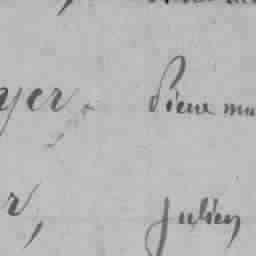 yer. Pierre mu
r, Julien